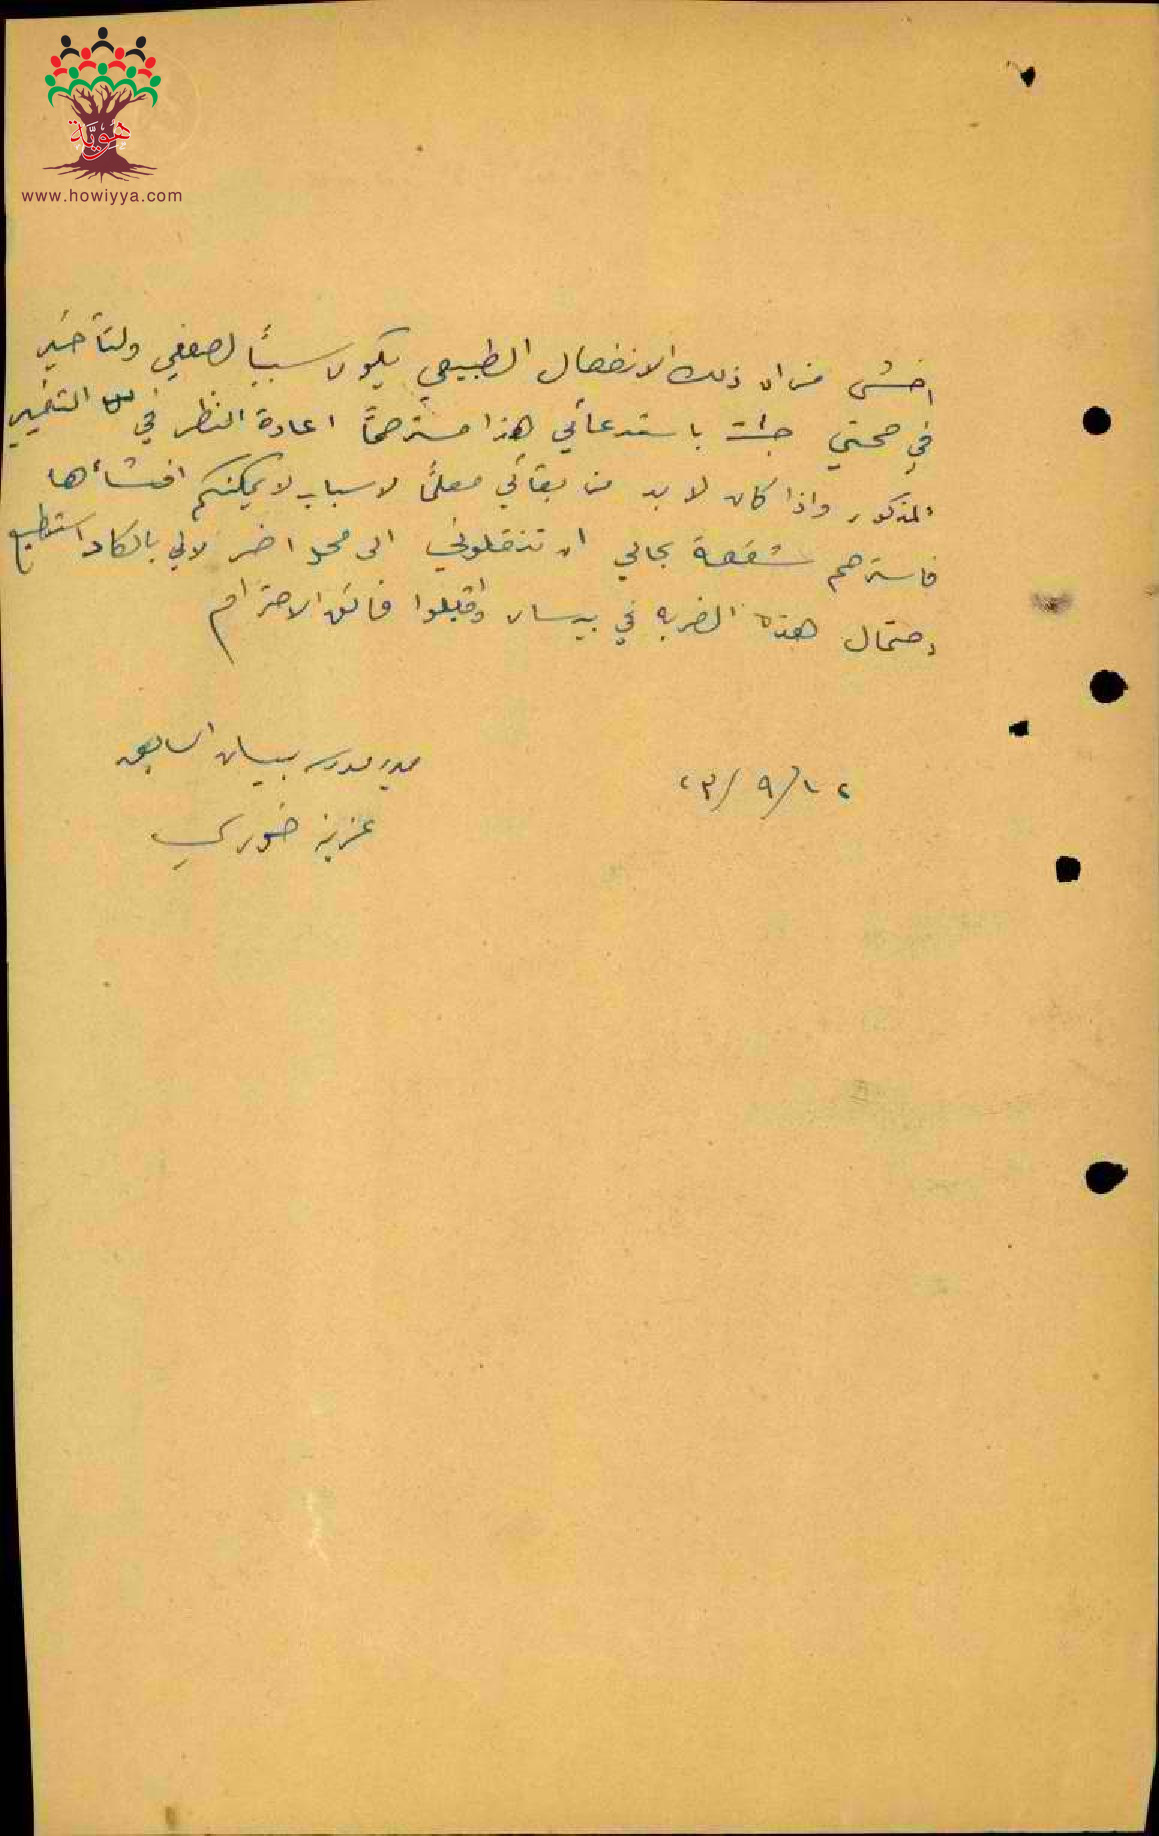 هوية
www.howiyya.com
اخشى من ان ذلك الانفعال الطبيعي يكون سببًا لضعفي ولتأخير
في صحتي جئت باستدعائي هذا مسترحمًا اعادة النظر في التغيير
المذكور واذا كان لا بد من بقائي معلمًا لاسباب لا يمكنكم افشاءها
فاسترحم شفقة بحالي ان تنقلوني الى محل اخر لاني بالكاد استطيع
احتمال هذه الضربه في بيسان واقبلوا فائق الاحترام
مدير مدرسة بيسان السابق
٢٣/٩/١٢
عزيز خوري